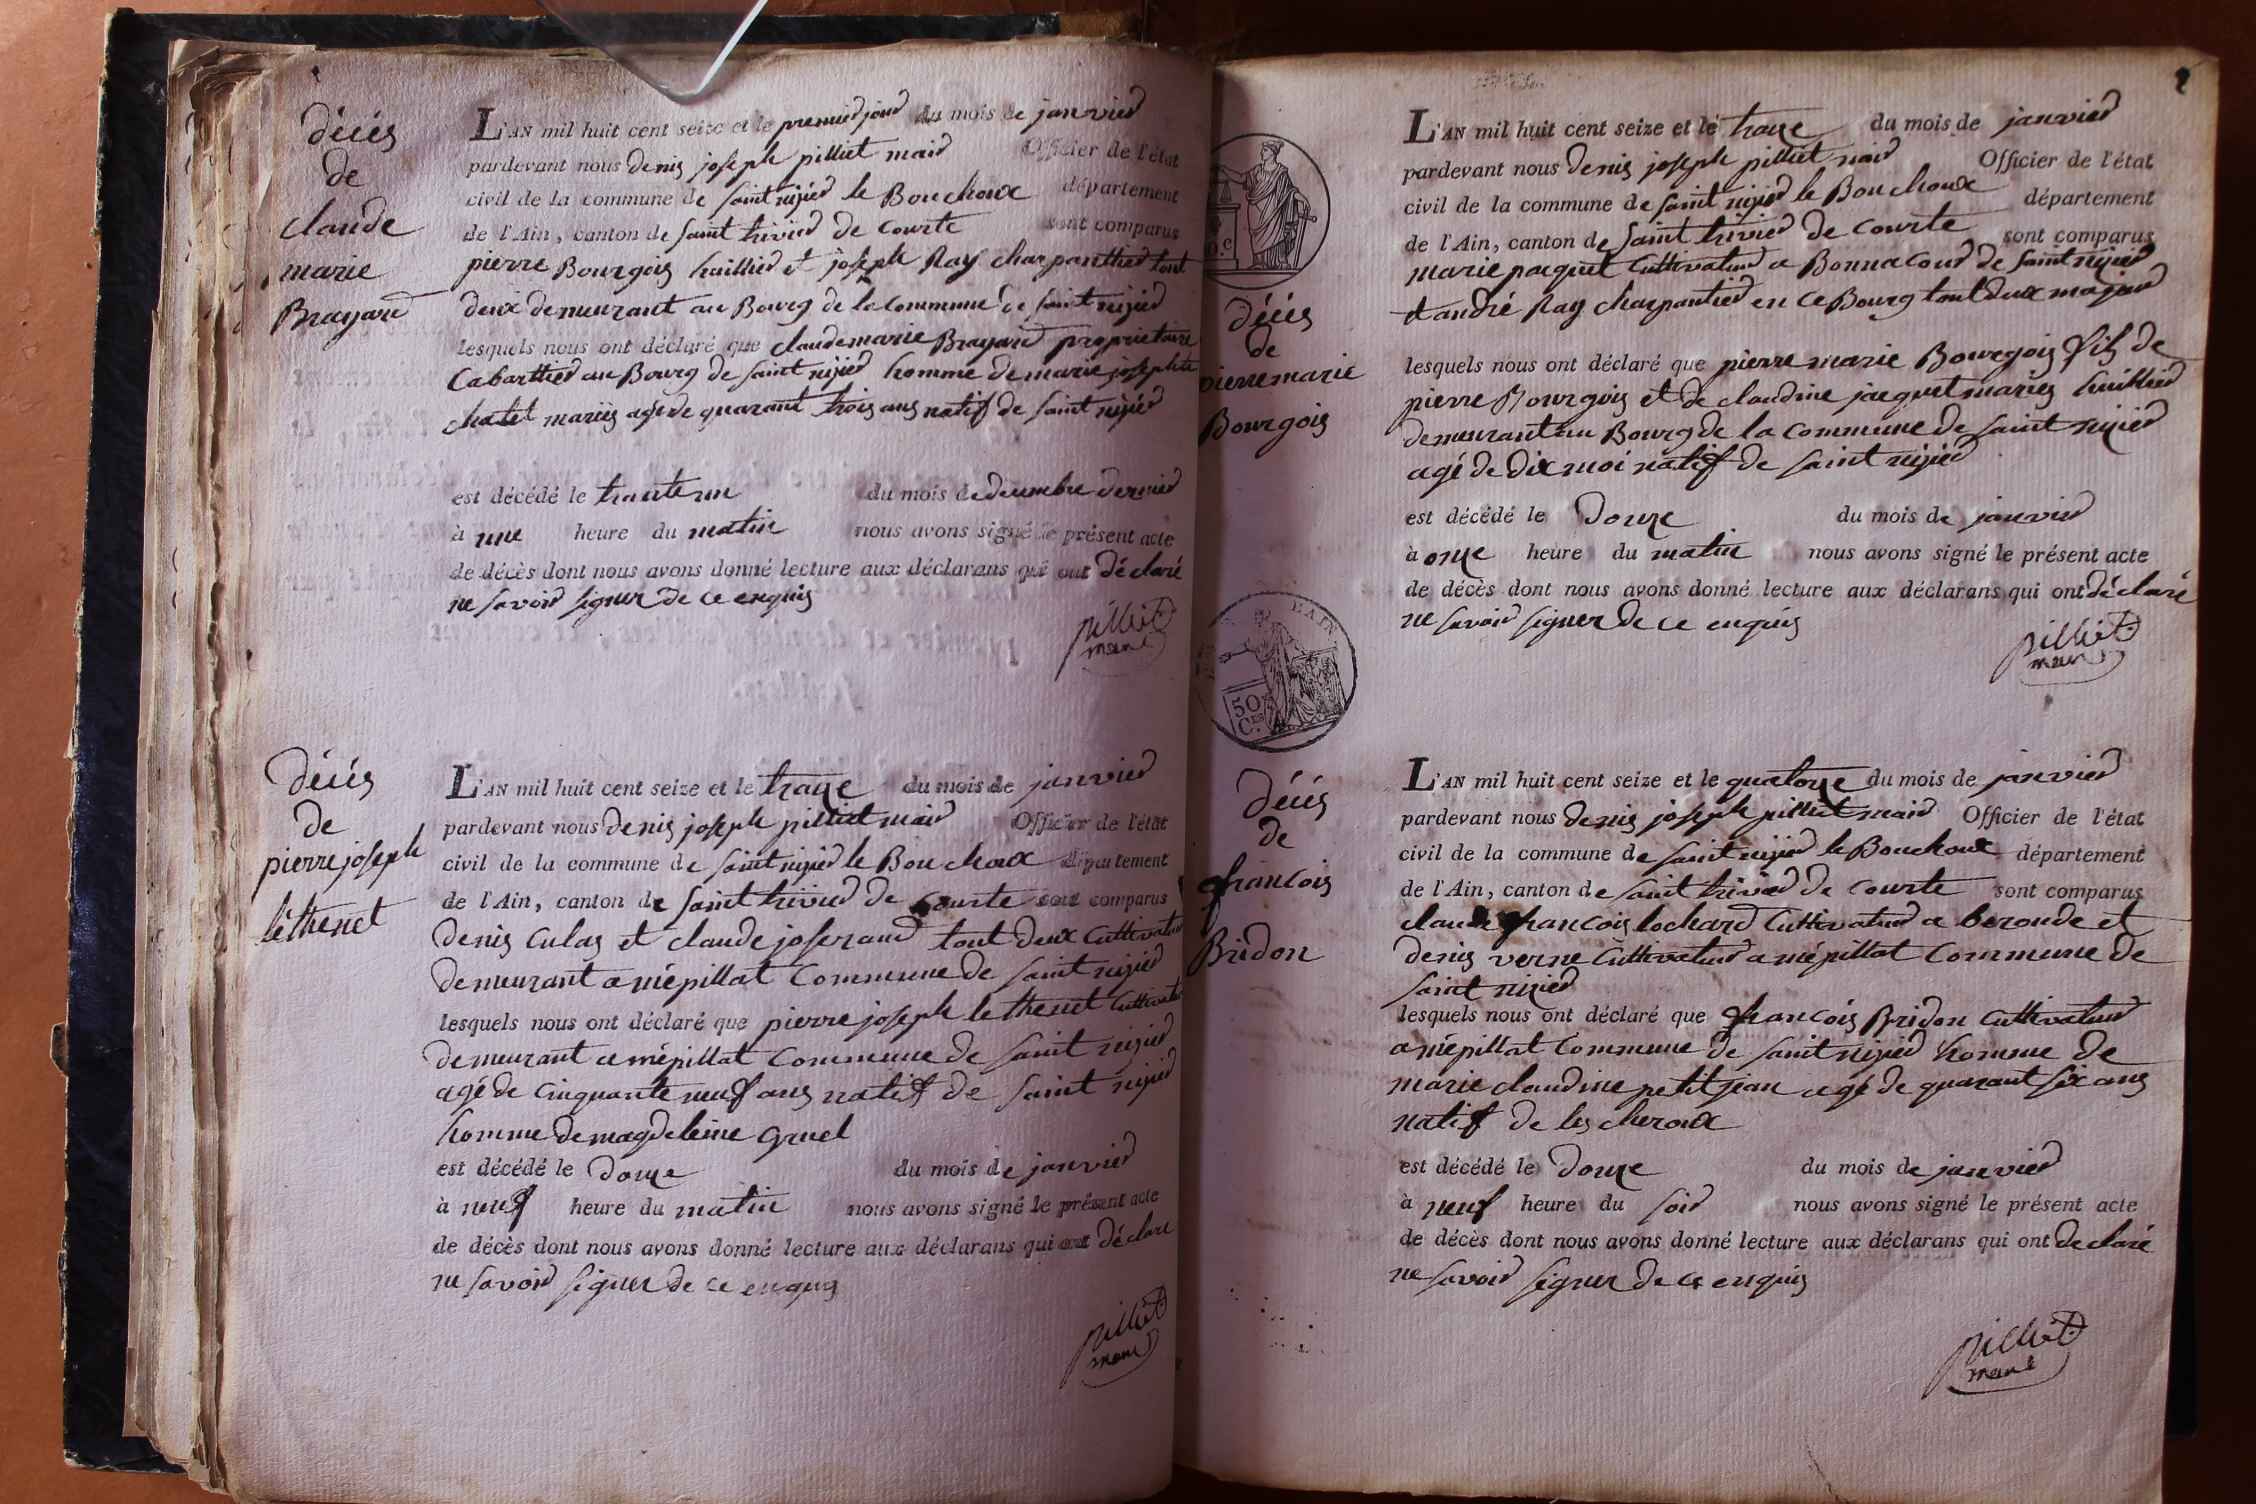 décés
de
claude
marie
Brayard
L'AN mil huit cent seize et le premier jour du mois de janvier
pardevant nous denis joseph pilliet mair Officier de l'état
civil de la commune de saint nizier le Bouchoux département
de l'Ain, canton de saint trivier de courte sont comparus
pierre Bourgois huillier et joseph Ray charpanthier tout
deux demeurant au Bourg de la commune de saint nizier
lesquels nous ont déclaré que claude marie Brayard proprietaire
Cabarthier au Bourg de saint nizier homme de marie josephte
chatel mariés agé de quarant trois ans natif de saint nizier
est décédé le trante un du mois de decembre dernier
à une heure du matin nous avons signé le présent acte
de décès dont nous avons donné lecture aux déclarans qui ont déclaré
ne savoir signer de ce enquis
pilliet
maire
décés
de
pierre joseph
léthenet
L'AN mil huit cent seize et le traize du mois de janvier
pardevant nous denis joseph pilliet mair Officier de l'état
civil de la commune de saint nizier le Bouchoux département
de l'Ain, canton de saint trivier de courte sont comparus
denis Culas et claude joserand tout deux Cultivateur
demeurant a mépillat Commune de saint nizier
lesquels nous ont déclaré que pierre joseph lethenet Cultivateur
demeurant a mépillat Commune de saint nizier
agé de Cinquante neuf ans natif de saint nizier
homme de magdeleine gruel
est décédé le douze du mois de janvier
à neuf heure du matin nous avons signé le présent acte
de décès dont nous avons donné lecture aux déclarans qui ont déclaré
ne savoir signer de ce enquis
pilliet
maire
décés
de
pierre marie
Bourgois
L'AN mil huit cent seize et le traize du mois de janvier
pardevant nous denis joseph pilliet mair Officier de l'état
civil de la commune de saint nizier le Bouchoux département
de l'Ain, canton de saint trivier de courte sont comparus
marie paquet Cultivateur a Bonnacour de saint nizier
et andré Ray charpantier en ce Bourg tout deux majeur
lesquels nous ont déclaré que pierre marie Bourgois fils de
pierre Bourgois et de claudine jacquet mariés huillier
demeurant au Bourg de la commune de saint nizier
agé de dix moi natif de saint nizier
est décédé le douze du mois de janvier
à onze heure du matin nous avons signé le présent acte
de décès dont nous avons donné lecture aux déclarans qui ont déclaré
ne savoir signer de ce enquis
pilliet
maire
50
C.
décés
de
francois
Bridon
L'AN mil huit cent seize et le quatorze du mois de janvier
pardevant nous denis joseph pilliet mair Officier de l'état
civil de la commune de saint nizier le Bouchoux département
de l'Ain, canton de saint trivier de courte sont comparus
claude francois lochard Cultivateur a beronde et
denis verne Cultivateur a mépillat Commune de
saint nizier
lesquels nous ont déclaré que francois Bridon Cultivateur
a mépillat Commune de saint nizier homme de
marie claudine petitjean agé de quarant six ans
natif de les cheroux
est décédé le douze du mois de janvier
à neuf heure du soir nous avons signé le présent acte
de décès dont nous avons donné lecture aux déclarans qui ont declaré
ne savoir signer de ce enquis
pilliet
maire